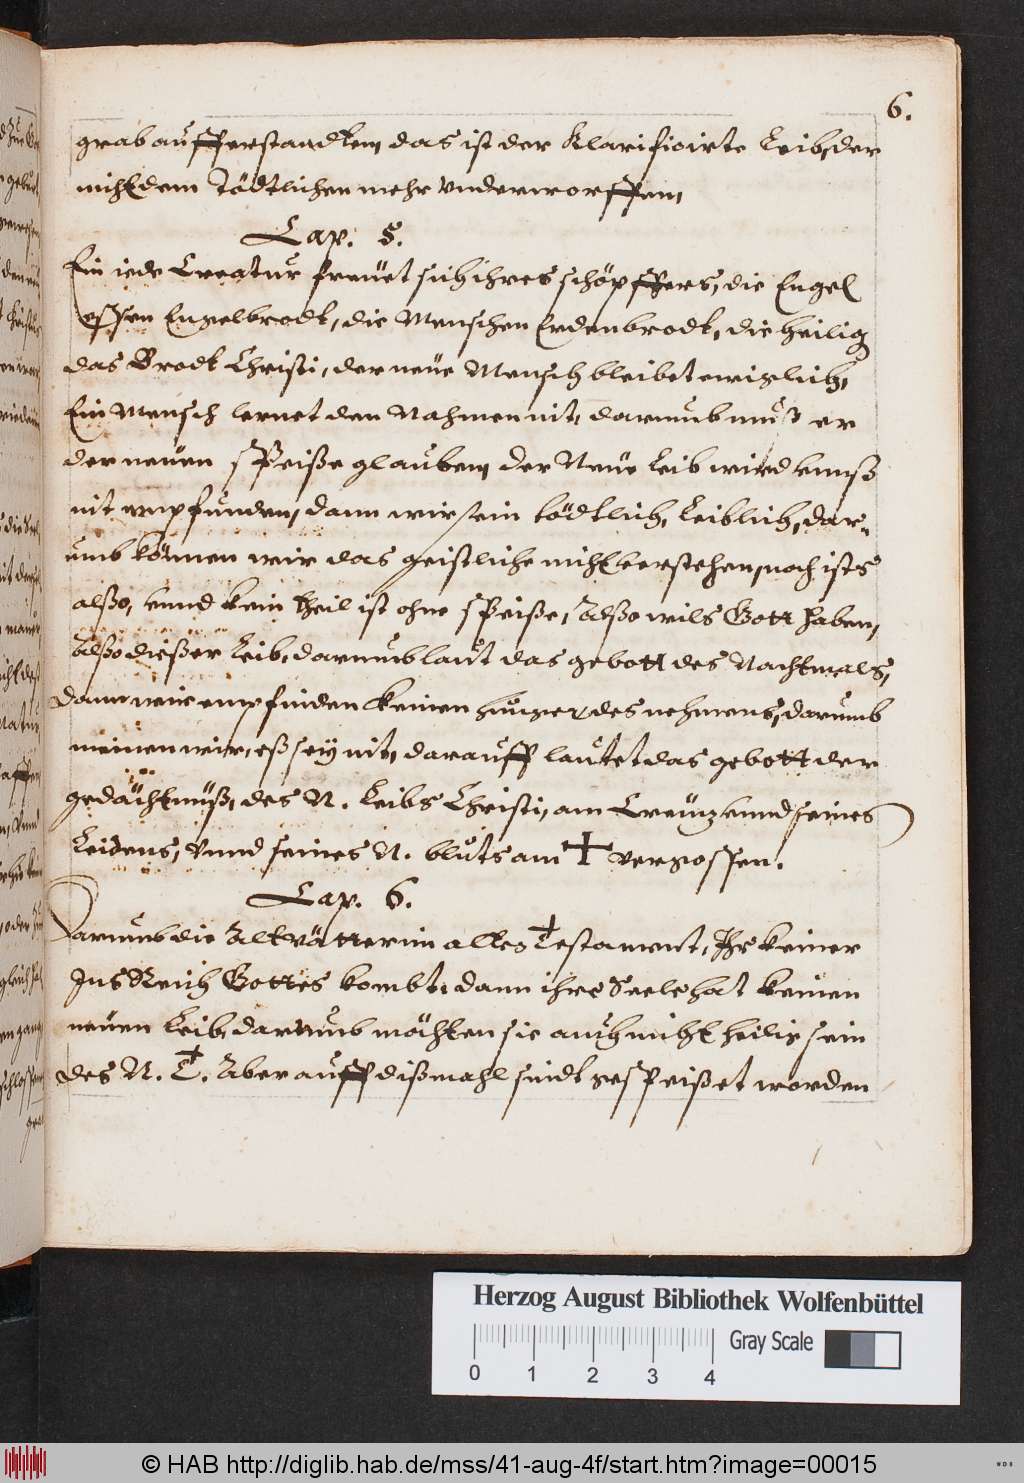 6.
grab aufferstandten, das ist der Klarificirte Leib, der
nicht dem Tödtlichen mehr Underworffen,
Cap. 5.
Ein iede Creatur freüet sich ihres schöpffers, die Engel
essen Engelbrodt, die Menschen Erdenbrodt, die heilig
das Brodt Christi, der neüe Mensch bleibet ewiglich,
Ein Mensch lernet den Nahmen nit, darumb muß er
der neüen speiße glauben, der Neüe Leib wird
nit empfunden, dann wir sein tödtlich, Leiblich, dar-
umb können wir das geistliche nicht verstehen, noch ists
alßo, vnnd kein theil ist ohne speiße, Alßo wils Gott haben,
Alßo dießer Leib, darumb laut das gebott des Nachtmals,
dann wir empfinden keinen hunger des nehmens, darumb
meinen wir, eß sey nit, darauff lautet das gebott der
gedächtnüß, des N. Leibs Christi, am Creütz vnnd seines
Leidens, Vnnd seines N. bluts am + vergossen.
Cap. 6.
Darumb die Altvätter im alten Testament, Ihr keiner
Ins Reich Gottes kombt, dann ihre Seele hat keinen
neüen Leib, darumb möchten sie auch nicht heilig sein
des N. T. Aber auff dißmahl sindt gespeißet worden
Herzog August Bibliothek Wolfenbüttel
Gray Scale
0 1 2 3 4
© HAB http://diglib.hab.de/mss/41-aug-4f/start.htm?image=00015